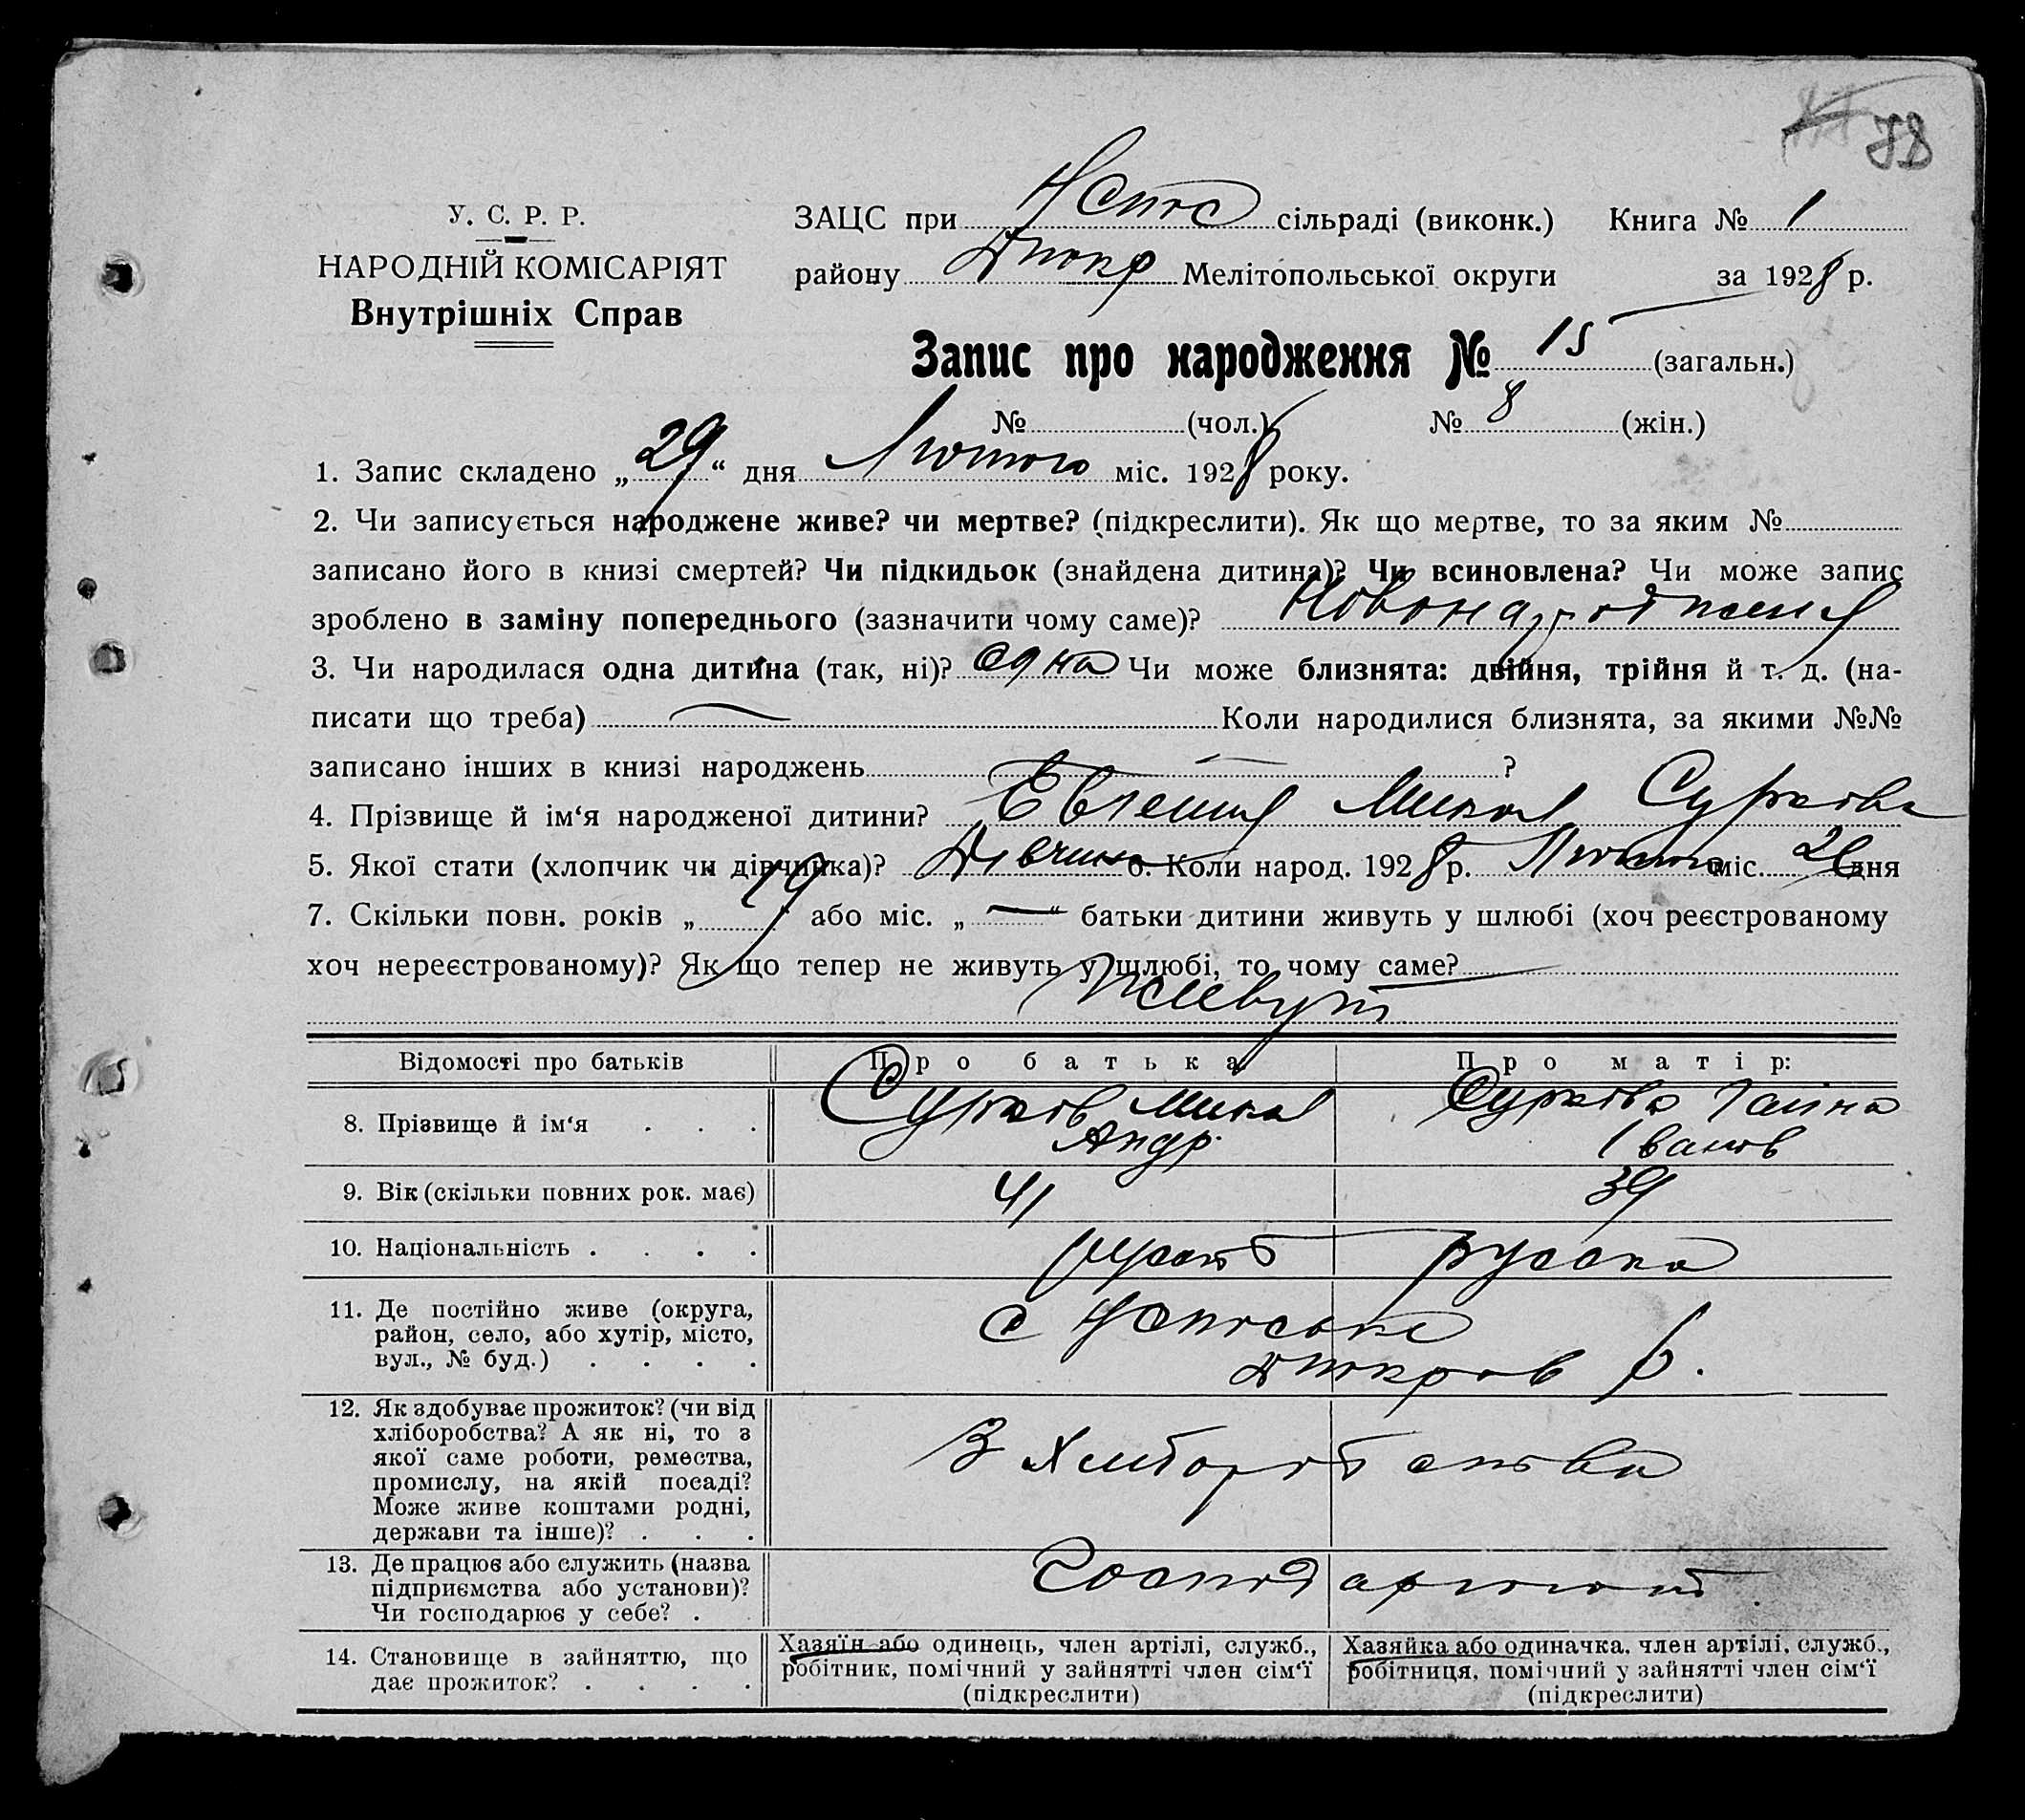 78
У. С. Р. Р.
НАРОДНІЙ КОМІСАРІЯТ
Внутрішніх Справ
ЗАЦС при сільраді (виконк.) Книга № 1
району Мелітопольської округи за 1928 р.
Запис про народження № 15 (загальн.)
№ (чол.) № 8 (жін.)
1. Запис складено „29“ дня Лютого міс. 1928 року.
2. Чи записується народжене живе? чи мертве? (підкреслити). Як що мертве, то за яким №
записано його в книзі смертей? Чи підкидьок (знайдена дитина)? Чи всиновлена? Чи може запис
зроблено в заміну попереднього (зазначити чому саме)?
3. Чи народилася одна дитина (так, ні)? одна Чи може близнята: двійня, трійня й т. д. (на-
писати що треба) — Коли народилися близнята, за якими №№
записано інших в книзі народжень — ?
4. Прізвище й ім‘я народженої дитини? Евгения Микол Суркова
5. Якої стати (хлопчик чи дівчинка)? Дівчина 6. Коли народ. 1928 р. Лютого міс. дня
7. Скільки повн. років „19“ або міс. „—“ батьки дитини живуть у шлюбі (хоч реєстрованому
хоч нереєстрованому)? Як що тепер не живуть у шлюбі, то чому саме?
Живуть
Відомості про батьків Про батька Про матір:
8. Прізвище й ім‘я . . . Сурков Микол Андр. Суркова Галина Іванов
9. Вік (скільки повних рок. має) 41 39
10. Національність . . . . русска
11. Де постійно живе (округа,
район, село, або хутір, місто,
вул., № буд.) . . . . с р.
12. Як здобуває прожиток? (чи від
хліборобства? А як ні, то з
якої саме роботи, ремества,
промислу, на якій посаді?
Може живе коштами родні,
держави та інше)? . . . З Хліборобства
13. Де працює або служить (назва
підприємства або установи)?
Чи господарює у себе? .
14. Становище в зайняттю, що
дає прожиток? . . . .
Хазяїн або одинець, член артілі, служб.,
робітник, помічний у зайнятті член сім‘ї
(підкреслити)
Хазяйка або одиначка, член артілі, служб.,
робітниця, помічний у зайнятті член сім‘ї
(підкреслити)